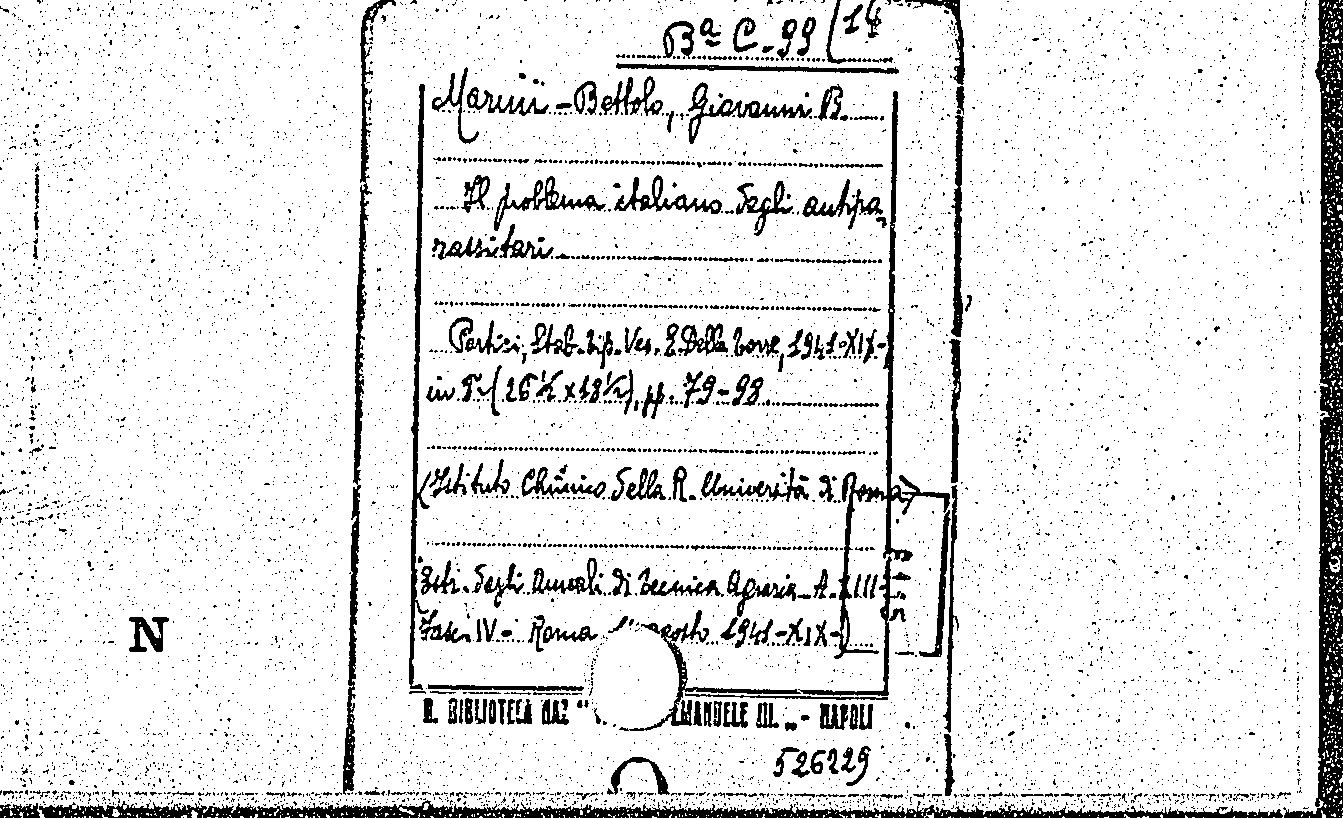 Bª C-99 (14
Marini-Bettolo, Giovanni B.
Il problema italiano degli antipa,
rassitari.
Portici, Stab. Tip. Ves. E. Della Torre, 1941-XIX-
in 8º (26 ½ x 18 ½), pp. 79-98.
(Istituto Chimico della R. Università di Roma)
Estr. degli Annali di Tecnica Agraria - A. XIII-
Fasc. IV - Roma agosto 1941-XIX-)
R. BIBLIOTECA NAZ " EMANUELE III. „ - NAPOLI
526229
N